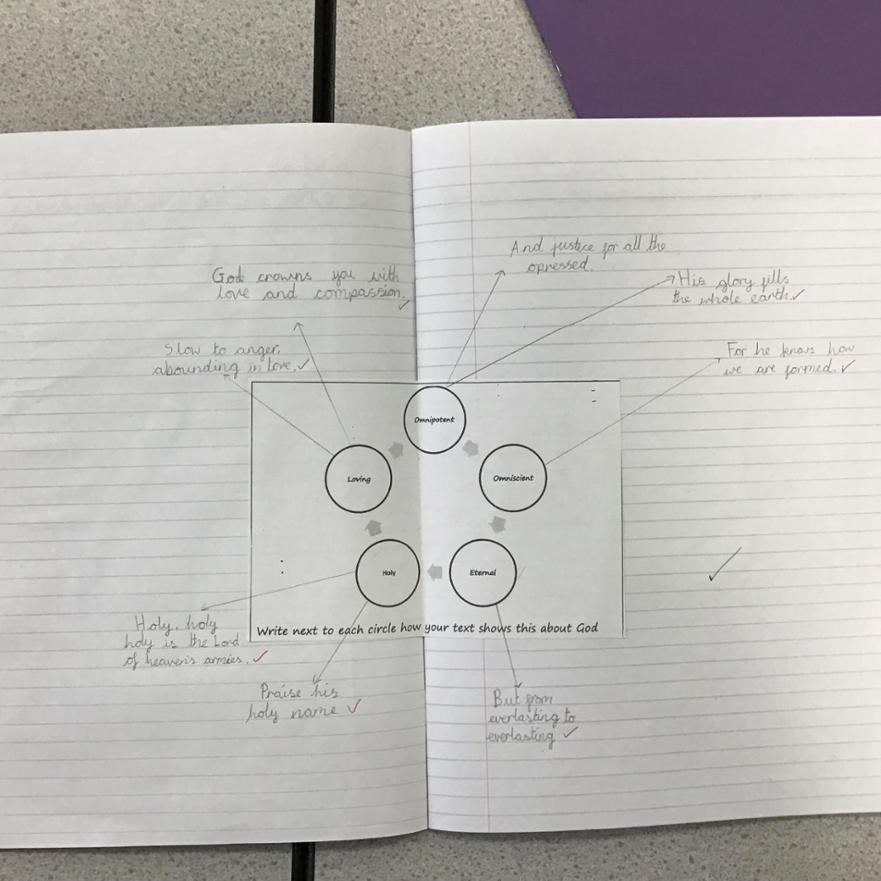 And justice for all the
opressed.
God crowns you with
love and compassion.
His glory fills
the whole earth.
Slow to anger,
abounding in love.
For he knows how
we are formed.
Omnipotent
Loving
Omniscient
Holy
Eternal
Write next to each circle how your text shows this about God
Holy, holy
holy is the Lord
of heaven's armies.
Praise his
holy name
But from
everlasting to
everlasting